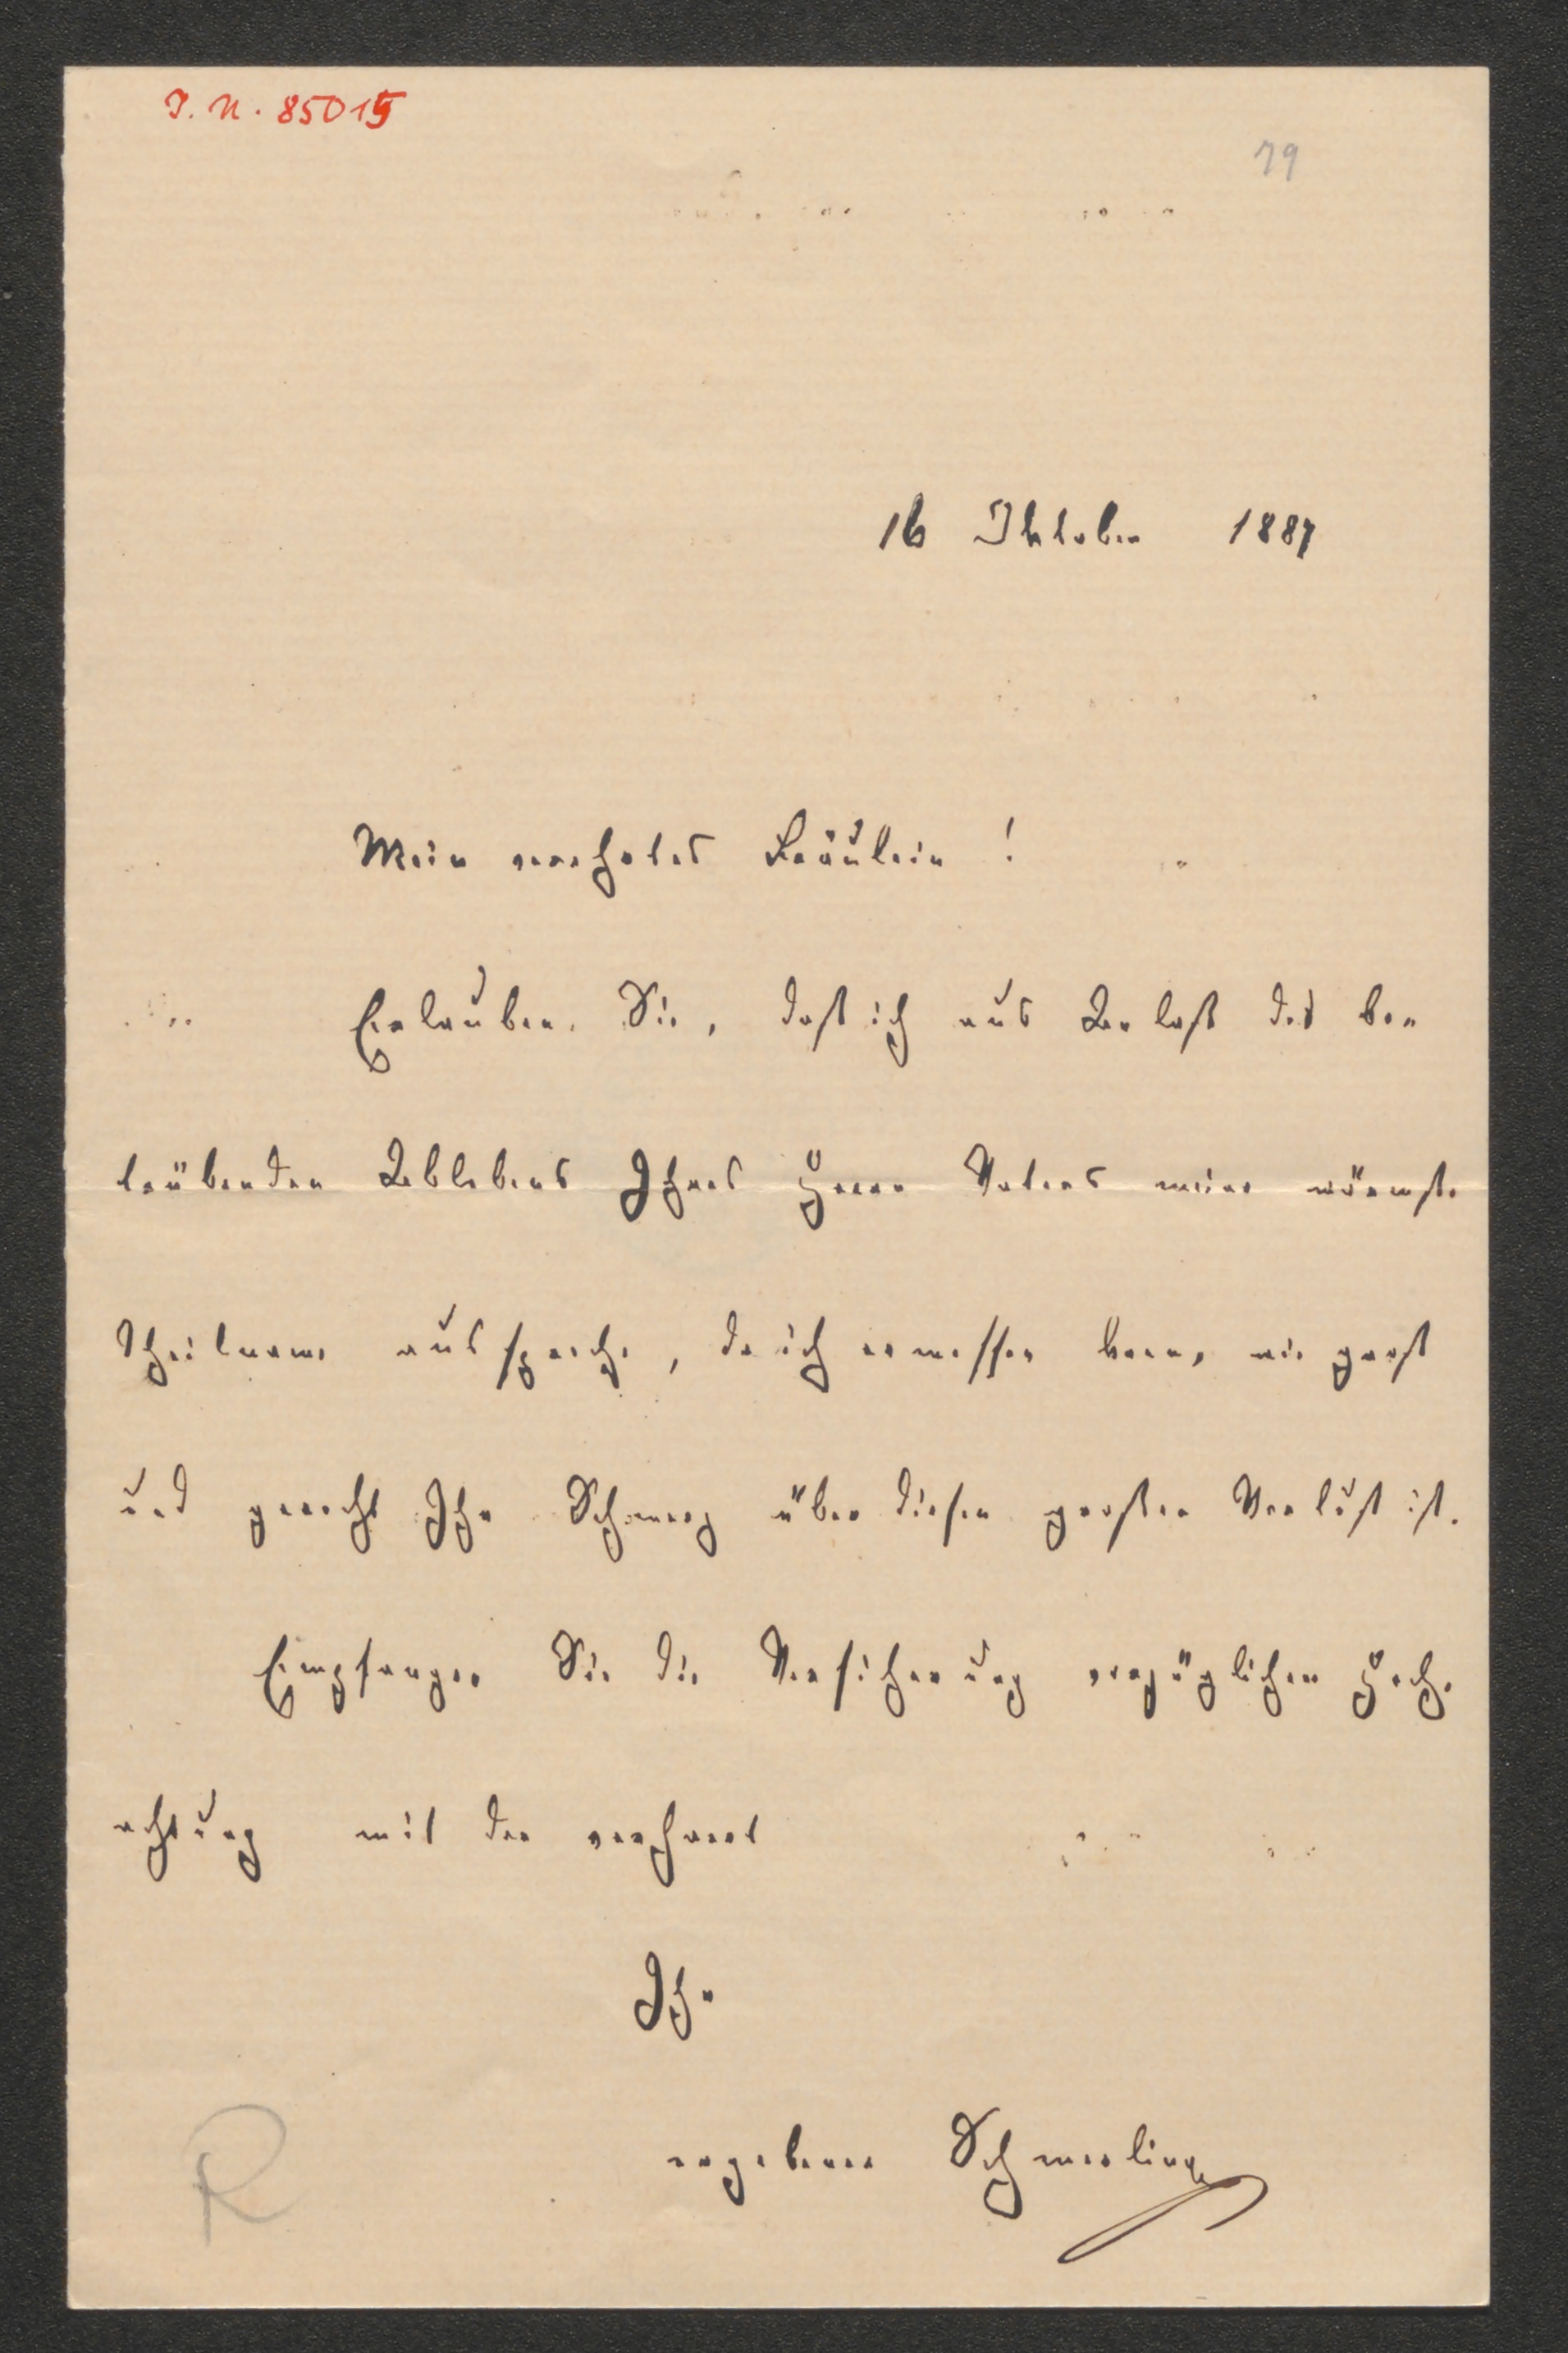 I. N. 85015
79
16 Oktober 1887
Mein verehrtes Fräulein !
Erlauben Sie, daß ich aus Anlaß des be-
trübenden Ablebens Ihres Herrn Vaters meine wärmste
Theilname ausspreche, da ich ermessen kann, wie groß
und gerecht Ihr Schmerz über diesen großen Verlust ist.
Empfangen Sie die Versicherung vorzüglicher Hoch-
achtung mit der verharrt
Ihr
ergebener Schmerling
R